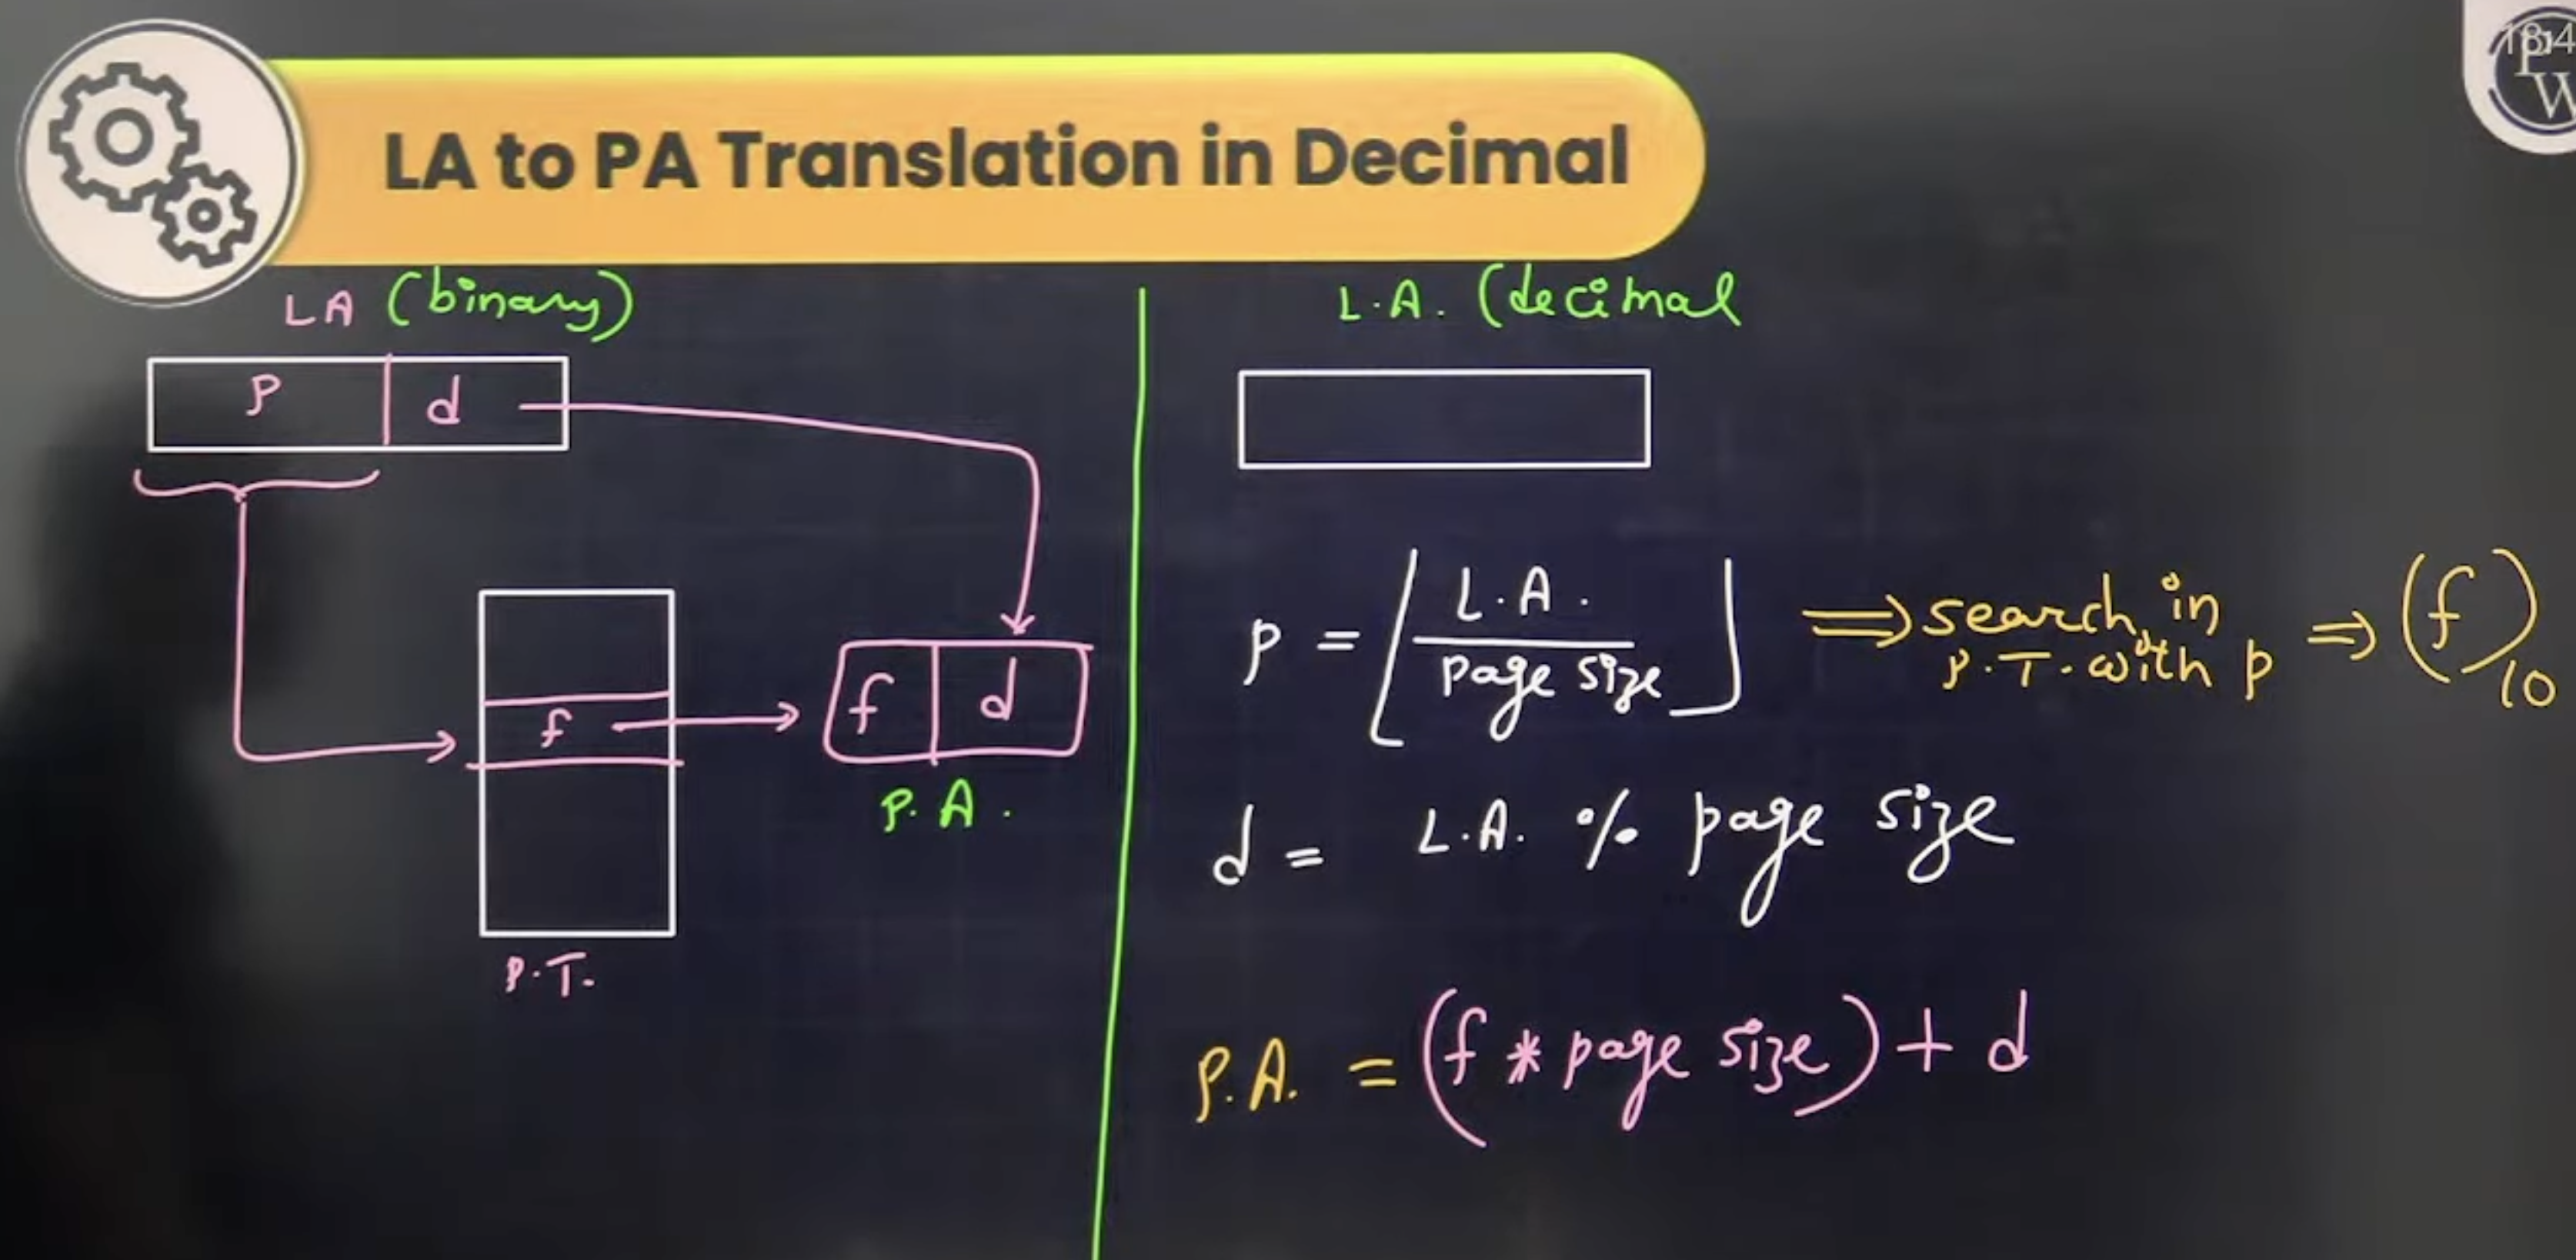 LA to PA Translation in Decimal
LA (binary)
p d
f
f d
P.A.
P.T.
L.A. (decimal
p = ⌊ L.A. / page size ⌋ ⟹ search in P.T. with p ⇒ (f)10
d = L.A. % page size
P.A. = (f * page size) + d
PW